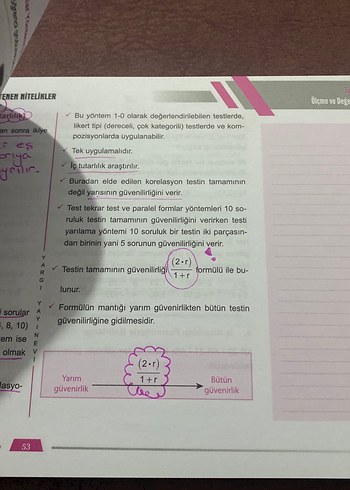 TENEN NİTELİKLER
Ölçme ve Değe
tarlılık)
en sonra ikiye
✓ Bu yöntem 1-0 olarak değerlendirilebilen testlerde,
likert tipi (dereceli, çok kategorili) testlerde ve kom-
pozisyonlarda uygulanabilir.
✓ Tek uygulamalıdır.
✓ İç tutarlılık araştırılır.
✓ Buradan elde edilen korelasyon testin tamamının
değil yarısının güvenilirliğini verir.
✓ Test tekrar test ve paralel formlar yöntemleri 10 so-
ruluk testin tamamının güvenilirliğini verirken testi
yarılama yöntemi 10 soruluk bir testin iki parçasın-
dan birinin yani 5 sorunun güvenilirliğini verir.
✓ Testin tamamının güvenilirliği (2·r) / 1+r formülü ile bu-
lunur.
✓ Formülün mantığı yarım güvenirlikten bütün testin
güvenilirliğine gidilmesidir.
YARGI YAYINEVİ
sorular
, 8, 10)
em ise
olmak
lasyo-
Yarım
güvenirlik
(2·r)
1+r
Bütün
güvenirlik
53